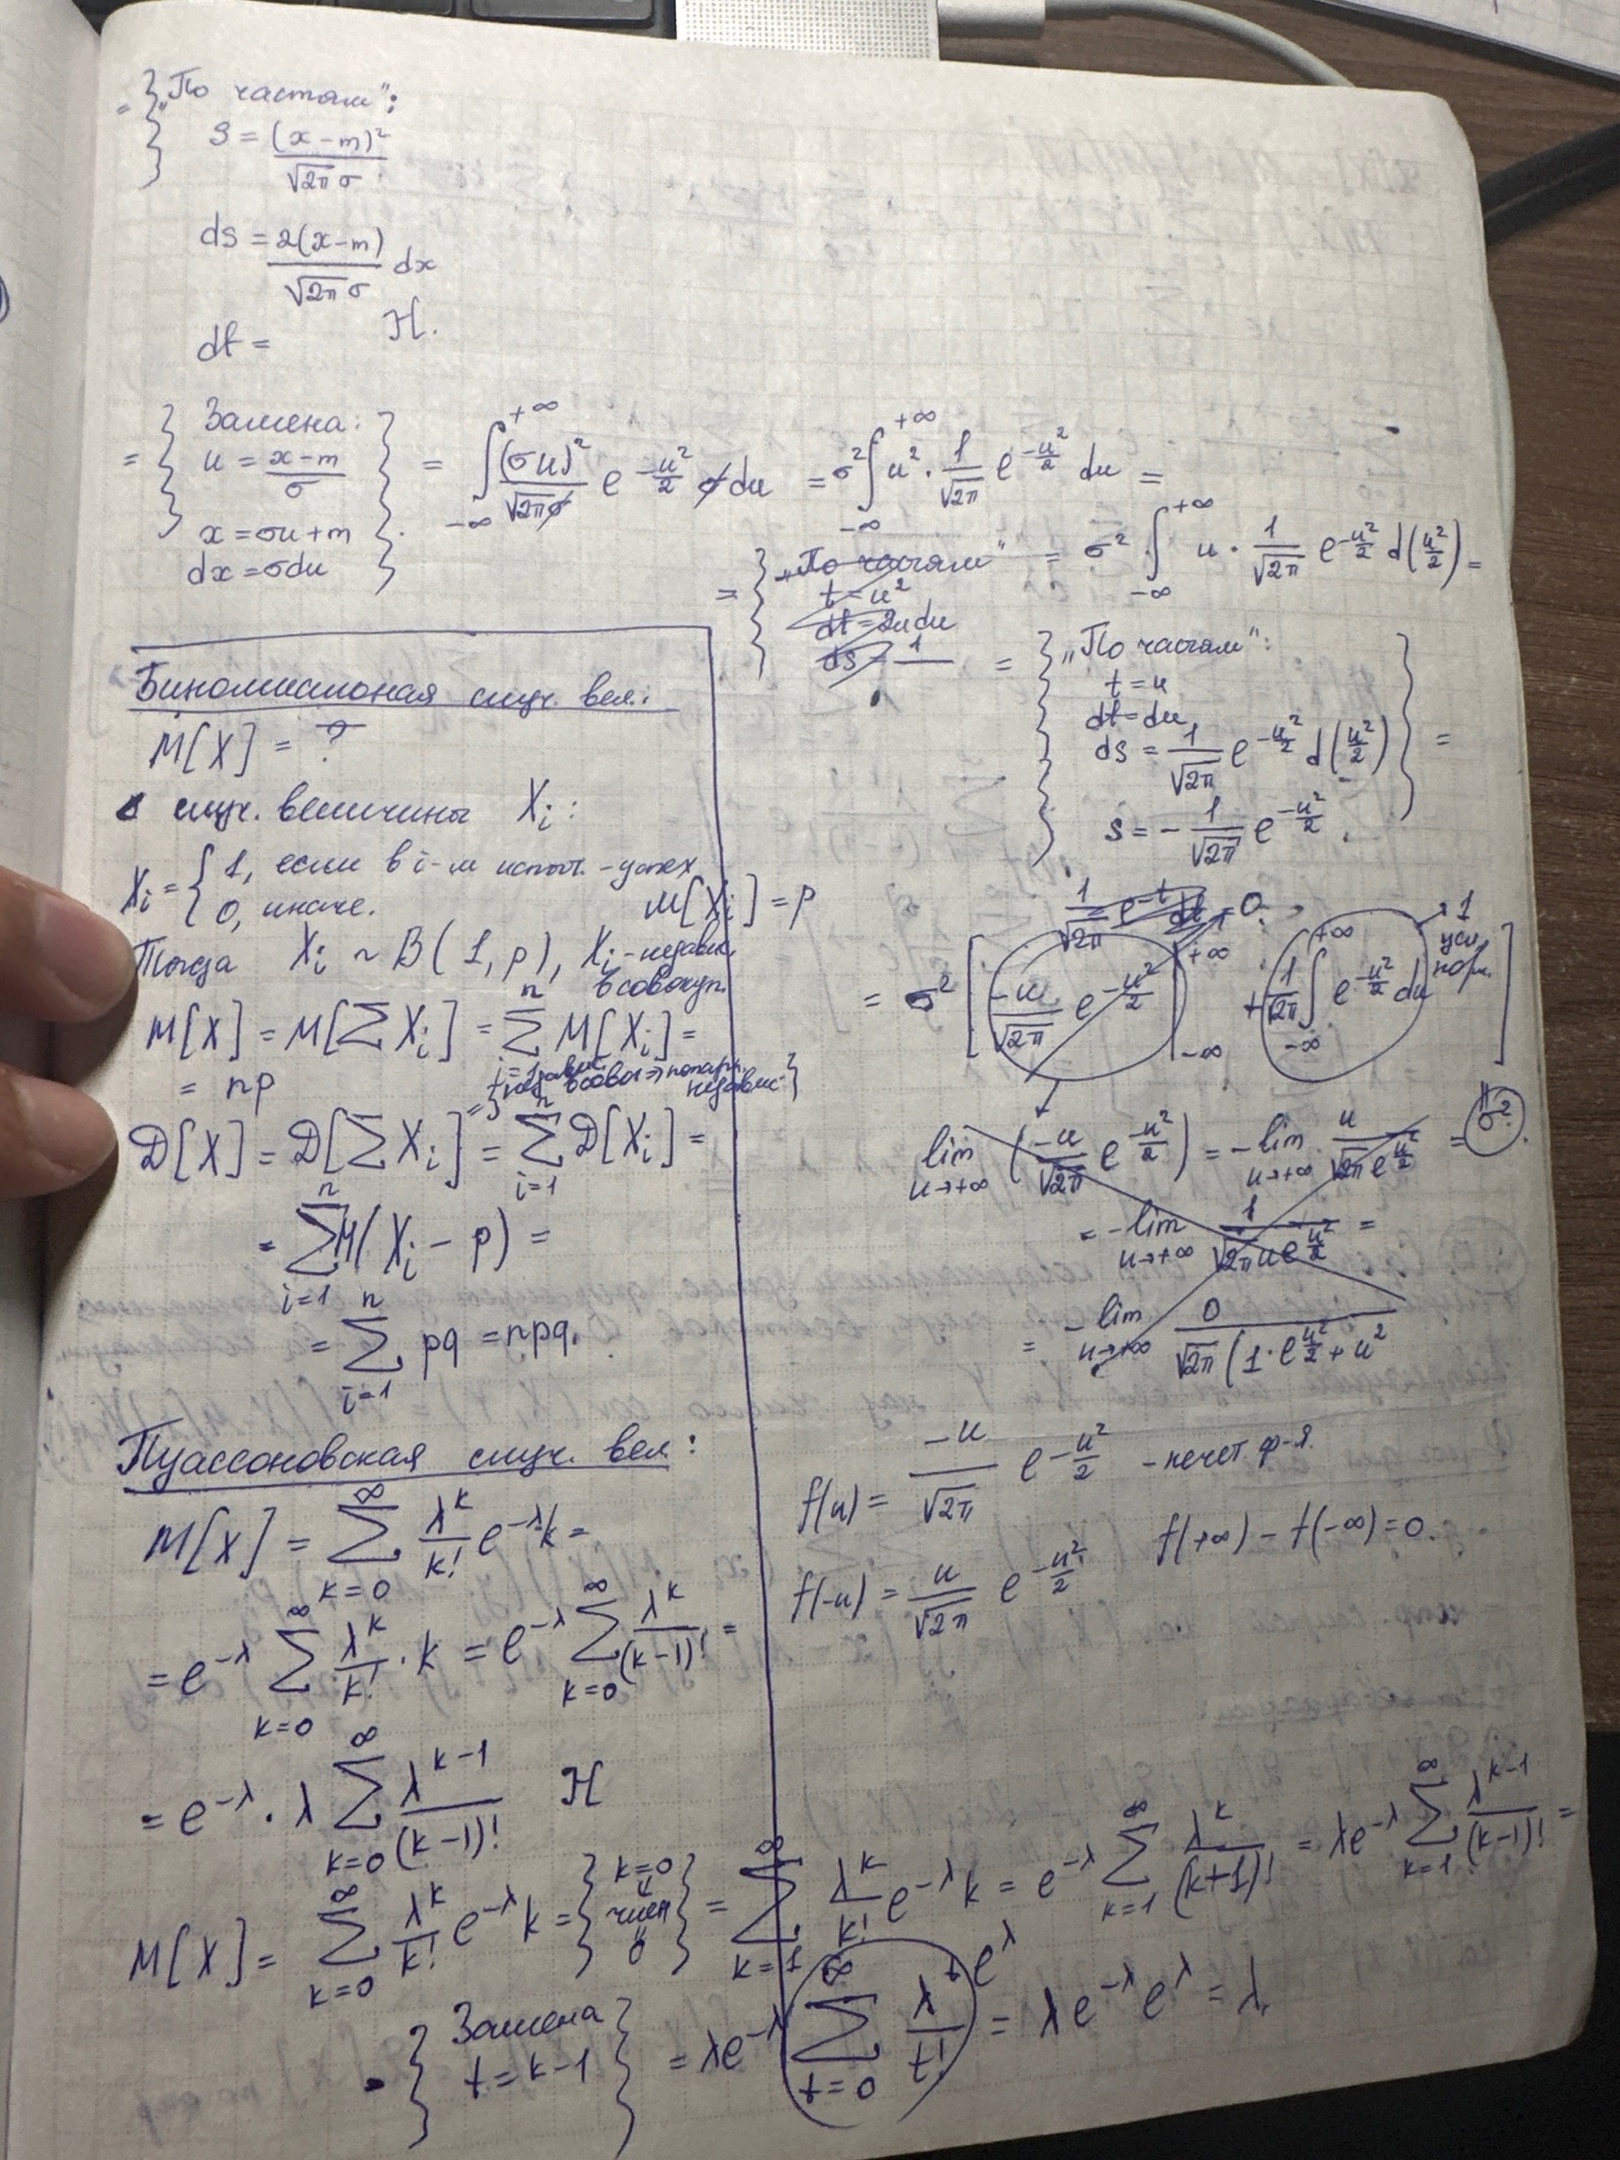 = } „По частям":
S = (x-m)² / √2π σ
ds = 2(x-m) / √2π σ dx
dt = Н.
= } Замена: u = (x-m)/σ x = σu+m dx = σdu } = ∫_{-∞}^{+∞} (σu)² / √2π σ e^{-u²/2} σ du = σ² ∫_{-∞}^{+∞} u² · 1/√2π e^{-u²/2} du =
= } „По частям" t = u² dt = 2udu ds = 1/ = σ² ∫_{-∞}^{+∞} u · 1/√2π e^{-u²/2} d(u²/2) =
= } „По частям": t = u dt = du ds = 1/√2π e^{-u²/2} d(u²/2) s = - 1/√2π e^{-u²/2}. } =
1/√2π e^{-t} = 0.
= σ² [ -u/√2π e^{-u²/2} |_{-∞}^{+∞} + 1/√2π ∫_{-∞}^{+∞} e^{-u²/2} du ] 1 усл. норм.
lim_{u→+∞} ( -u/√2π e^{-u²/2} ) = -lim_{u→+∞} u / √2π e^{u²/2} = σ².
= -lim_{u→+∞} 1 / √2π u e^{u²/2} =
= -lim_{u→+∞} 0 / √2π (1·e^{u²/2} + u²
f(u) = -u/√2π e^{-u²/2} - нечет ф-я.
f(+∞) - f(-∞) = 0.
f(-u) = u/√2π e^{-u²/2}
Биномиальная случ. вел.:
M[X] = ?
случ. величины X_i:
X_i = { 1, если в i-м испыт. - успех
0, иначе. M[X_i] = p
Тогда X_i ~ B(1, p), X_i - независ.
в совокуп.
M[X] = M[∑X_i] = ∑_{i=1}^{n} M[X_i] =
= np
независ. в совок ⇒ попарн. независ. }
D[X] = D[∑X_i] = ∑_{i=1}^{n} D[X_i] =
= ∑_{i=1}^{n} M(X_i - p) =
= ∑_{i=1}^{n} pq = npq.
Пуассоновская случ. вел:
M[X] = ∑_{k=0}^{∞} λ^k/k! e^{-λ} k =
= e^{-λ} ∑_{k=0}^{∞} λ^k/k! · k = e^{-λ} ∑_{k=0}^{∞} λ^k/(k-1)! =
= e^{-λ} · λ ∑_{k=0}^{∞} λ^{k-1}/(k-1)! Н
M[X] = ∑_{k=0}^{∞} λ^k/k! e^{-λ} k = } k=0 ↓ член 0 } = ∑_{k=1}^{∞} λ^k/k! e^{-λ} k = e^{-λ} ∑_{k=1}^{∞} λ^k/(k+1)! = λe^{-λ} ∑_{k=1}^{∞} λ^{k-1}/(k-1)! =
= } Замена t = k-1 } = λe^{-λ} ∑_{t=0}^{∞} λ^t/t! e^λ = λe^{-λ} e^λ = λ.